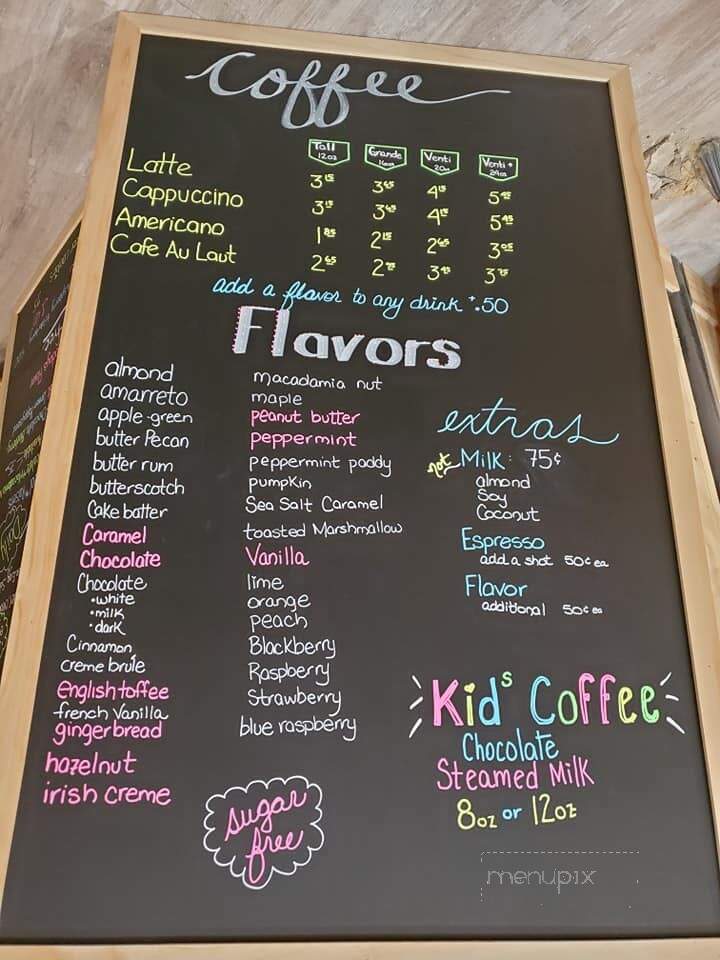 Coffee
Tall 12oz Grande 16oz Venti 20oz Venti + 24oz
Latte 3 15 3 65 4 15 5 45
Cappuccino 3 15 3 65 4 15 5 45
Americano 1 85 2 15 2 65 3 05
Cafe Au Laut 2 65 2 75 3 3 75
add a flavor to any drink +.50
Flavors
almond
amarreto
apple-green
butter Pecan
butter rum
butterscotch
Cake batter
Caramel
Chocolate
Chocolate
• white
• milk
• dark
Cinnamon
creme brule
english toffee
french Vanilla
gingerbread
hazelnut
irish creme
macadamia nut
maple
peanut butter
peppermint
peppermint paddy
pumpkin
Sea Salt Caramel
toasted Marshmallow
Vanilla
lime
orange
peach
Blackberry
Raspberry
Strawberry
blue raspberry
sugar
free
extras
not Milk: 75¢
almond
Soy
Coconut
Espresso
add a shot 50¢ ea
Flavor
additional 50¢ ea
Kids Coffee
Chocolate
Steamed Milk
8oz or 12oz
menupix